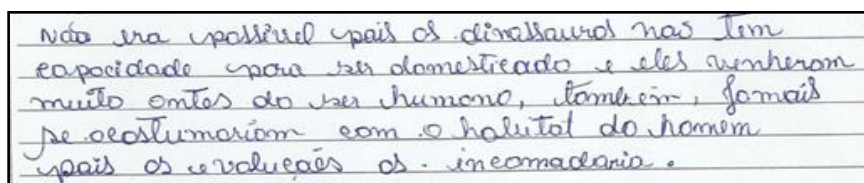 Não era possível pois os dinossauros nao tem
capacidade para ser domesticado e eles venherom
muito antes do ser humano, também, jamais
se acostumariam com o habitat do homem
pois as evoluções os incomadaria.